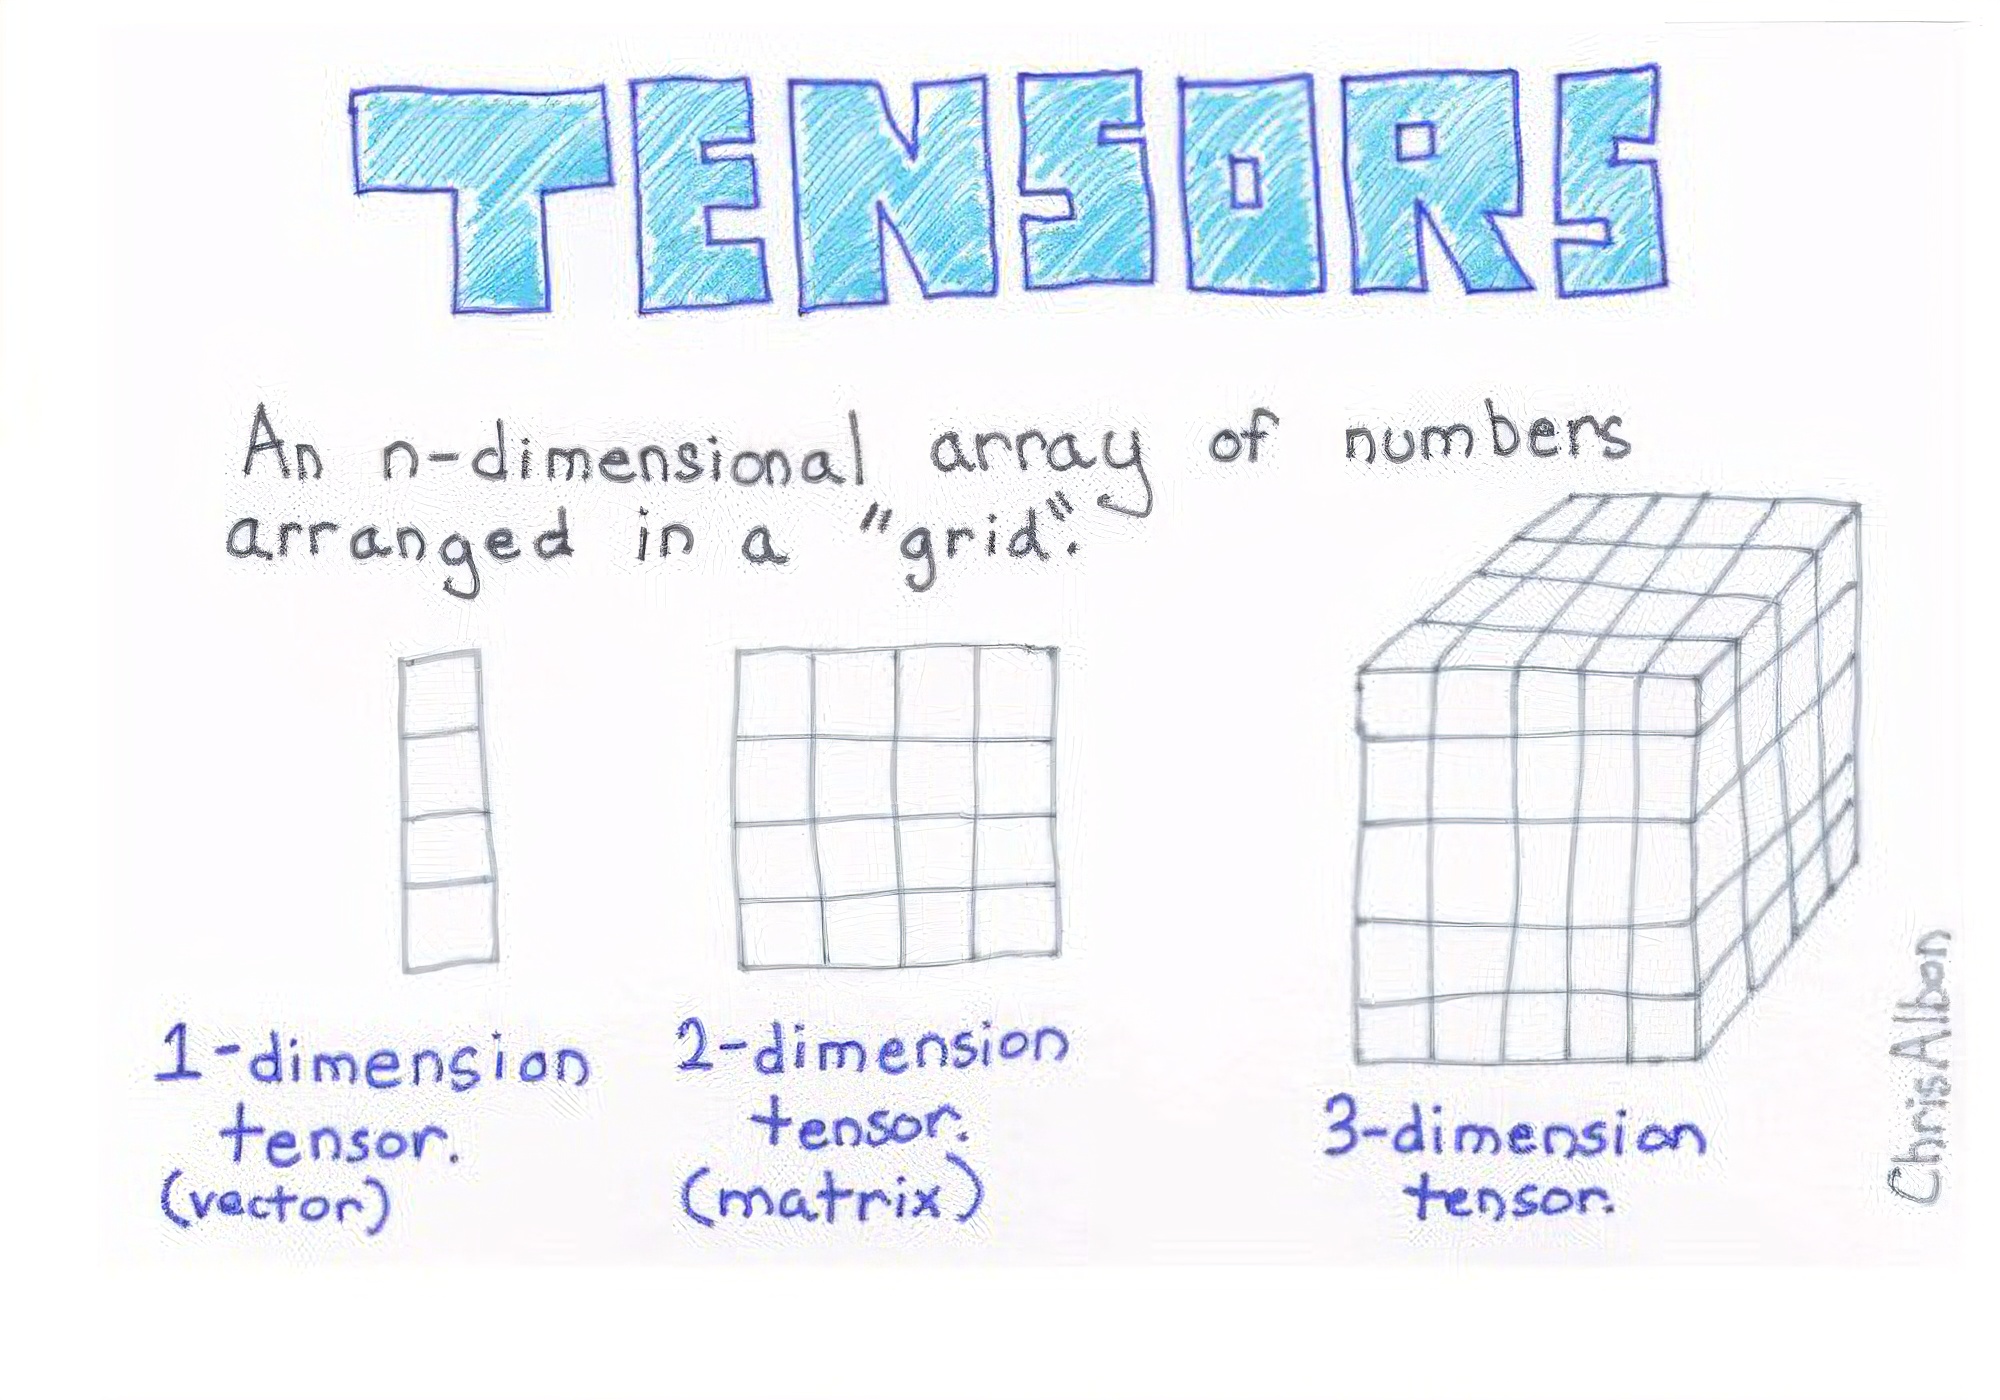 TENSORS
An n-dimensional array of numbers
arranged in a "grid".
1-dimension
tensor.
(vector)
2-dimension
tensor.
(matrix)
3-dimension
tensor.
ChrisAlbon